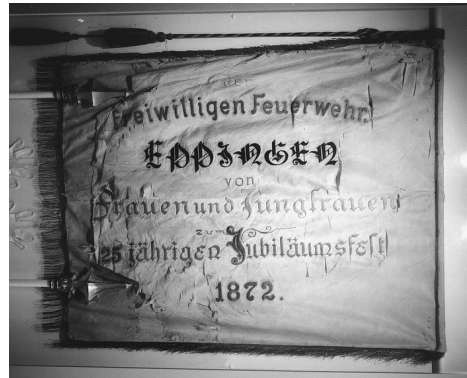 der
Freiwilligen Feuerwehr
EPPINGEN
von
Frauen und Jungfrauen
zum
25 jährigen Jubiläumsfest
1872.